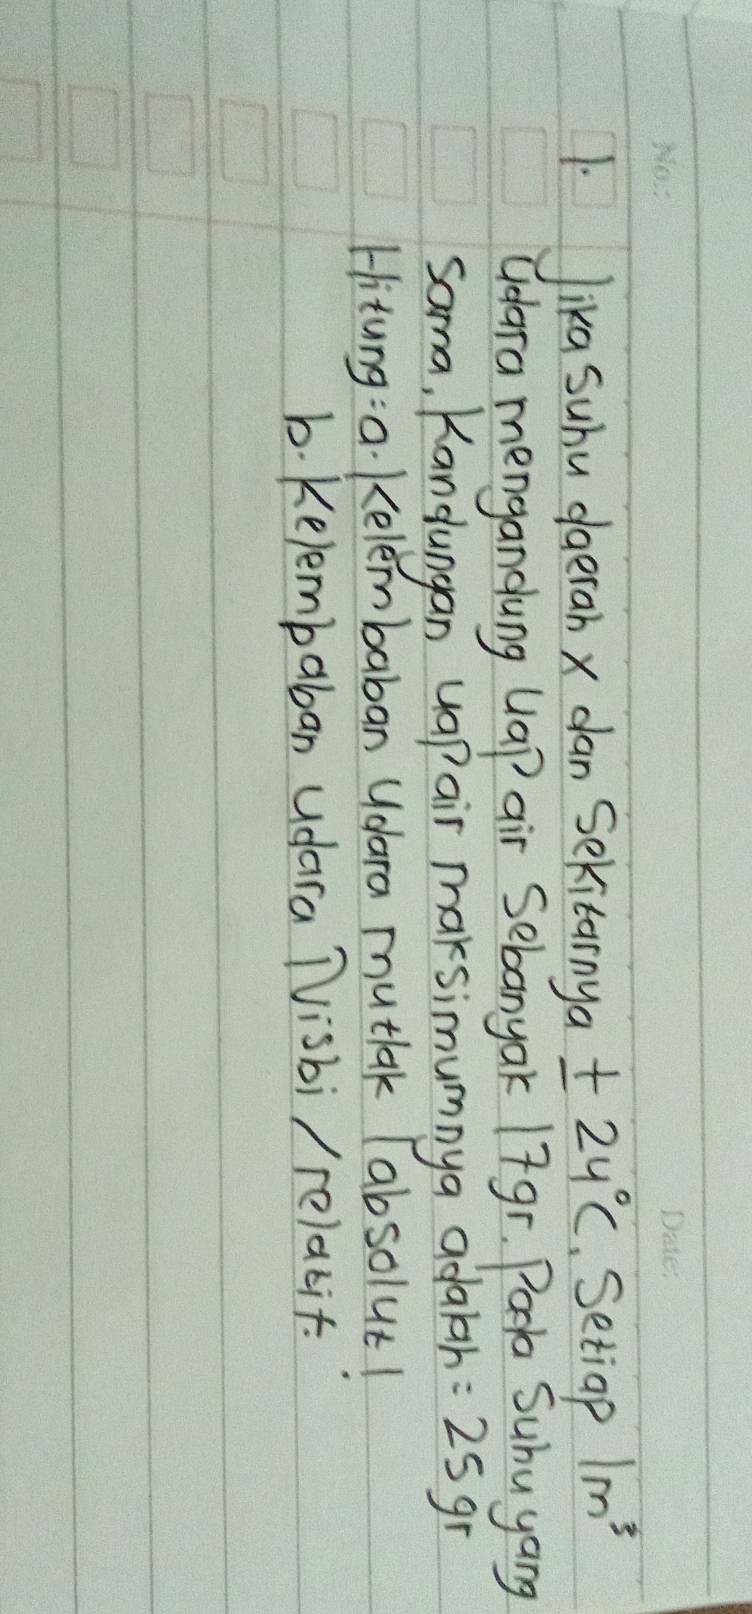 No.: Date:
1. Jika Suhu daerah x dan Sekitarnya ± 24°C, Setiap 1m³
Udara mengandung Uap air Sebanyak 17gr. Pada Suhu yang
Sama, Kandungan uap air maksimumnya adalah = 25 gr
Hitung = a. Kelembaban Udara mutlak / absolut !
b. Kelembaban udara Nisbi / relatif.